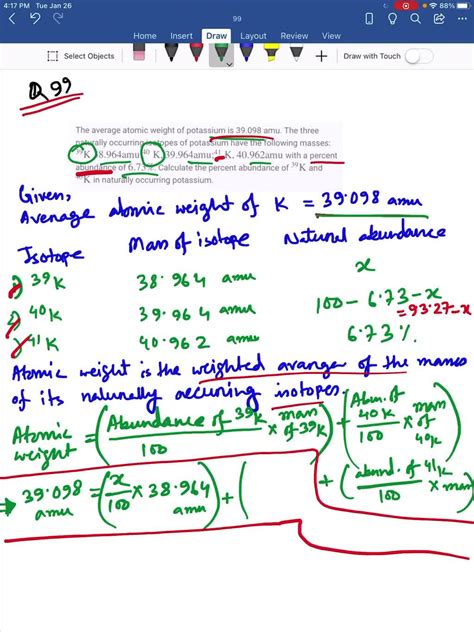 4:17 PM Tue Jan 26
88%
99
Home Insert Draw Layout Review View
Select Objects
Draw with Touch
Q 99
The average atomic weight of potassium is 39.098 amu. The three
naturally occurring isotopes of potassium have the following masses:
39K, 38.964amu; 40 K, 39.964amu; 41 K, 40.962amu with a percent
abundance of 6.73%. Calculate the percent abundance of 39K and
K in naturally occurring potassium.
Given,
Average atomic weight of K = 39.098 amu
Isotope Mass of isotope Natural abundance
1) 39K 38.964 amu x
2) 40K 39.964 amu 100 - 6.73 - x
= 93.27 - x
3) 41K 40.962 amu 6.73 %
Atomic weight is the weighted avarage of the masses
of its naturally occuring isotopes.
Atomic weight = (Abundance of 39K / 100 × mass of 39K) + (Abun. of 40K / 100 × mass of 40K)
+ (abund. of 41K / 100 × mass
→ 39.098 amu = (x / 100 × 38.964 amu) + ( )